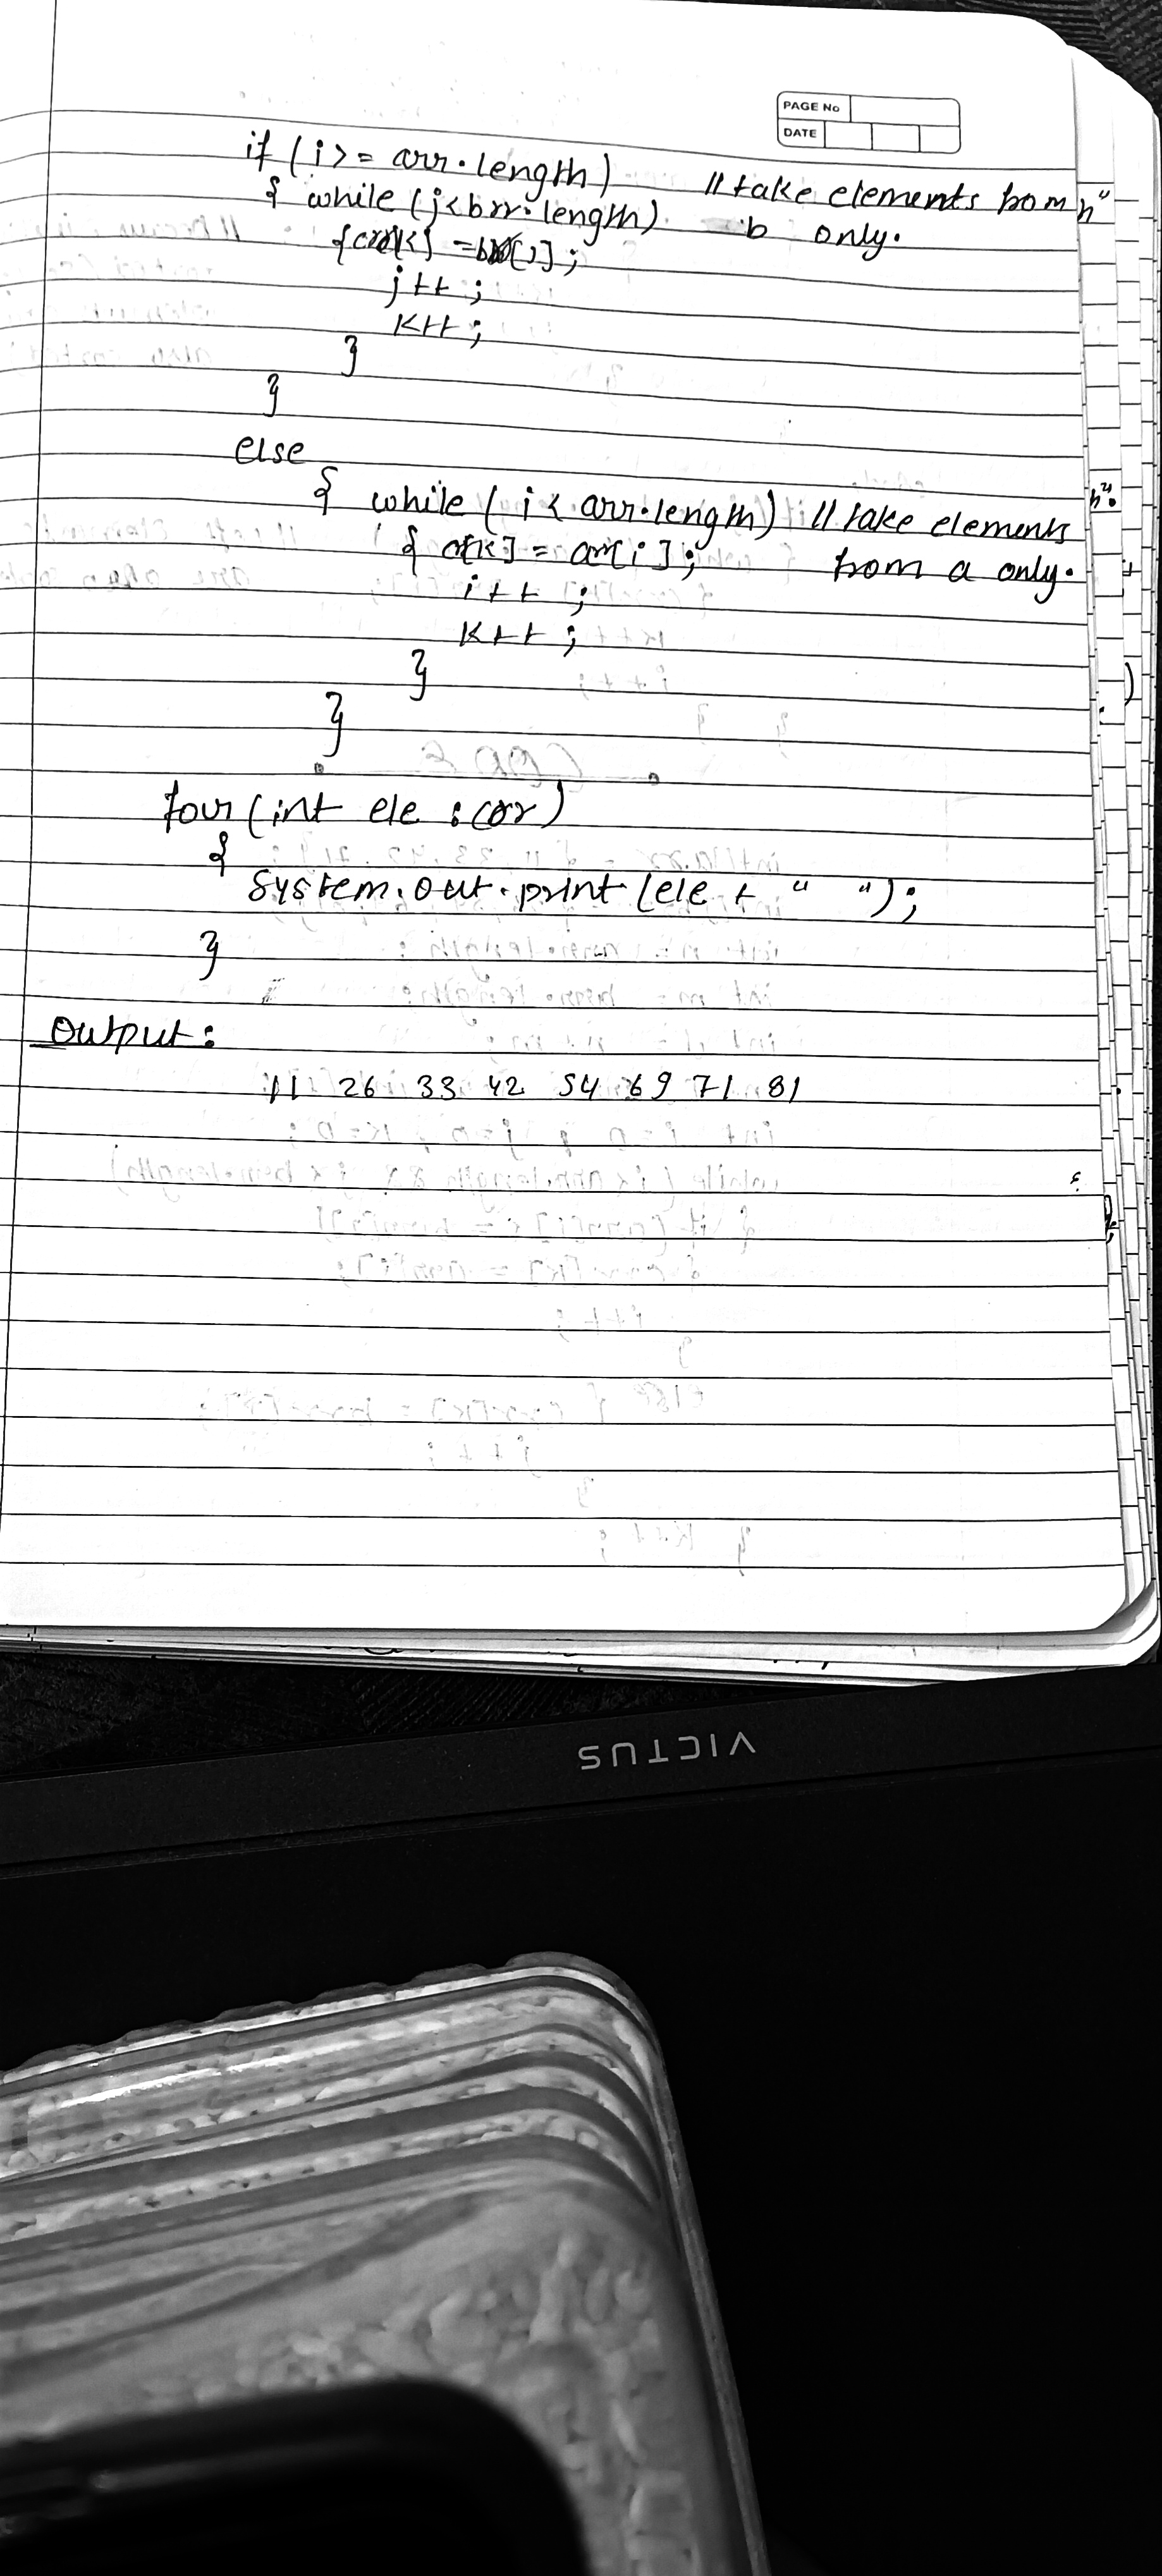 PAGE No
DATE
if (i>= arr.length) // take elements from
{ while (j<brr.length) b only.
{crr[k] = brr[j];
j++;
k++;
}
}
else
{ while (i < arr.length) // take elements
{ crr[k] = arr[i]; from a only.
i++;
k++;
}
}
four (int ele : crr)
{
System.out.print (ele + " ");
}
Output:
11 26 33 42 54 69 71 81
VICTUS